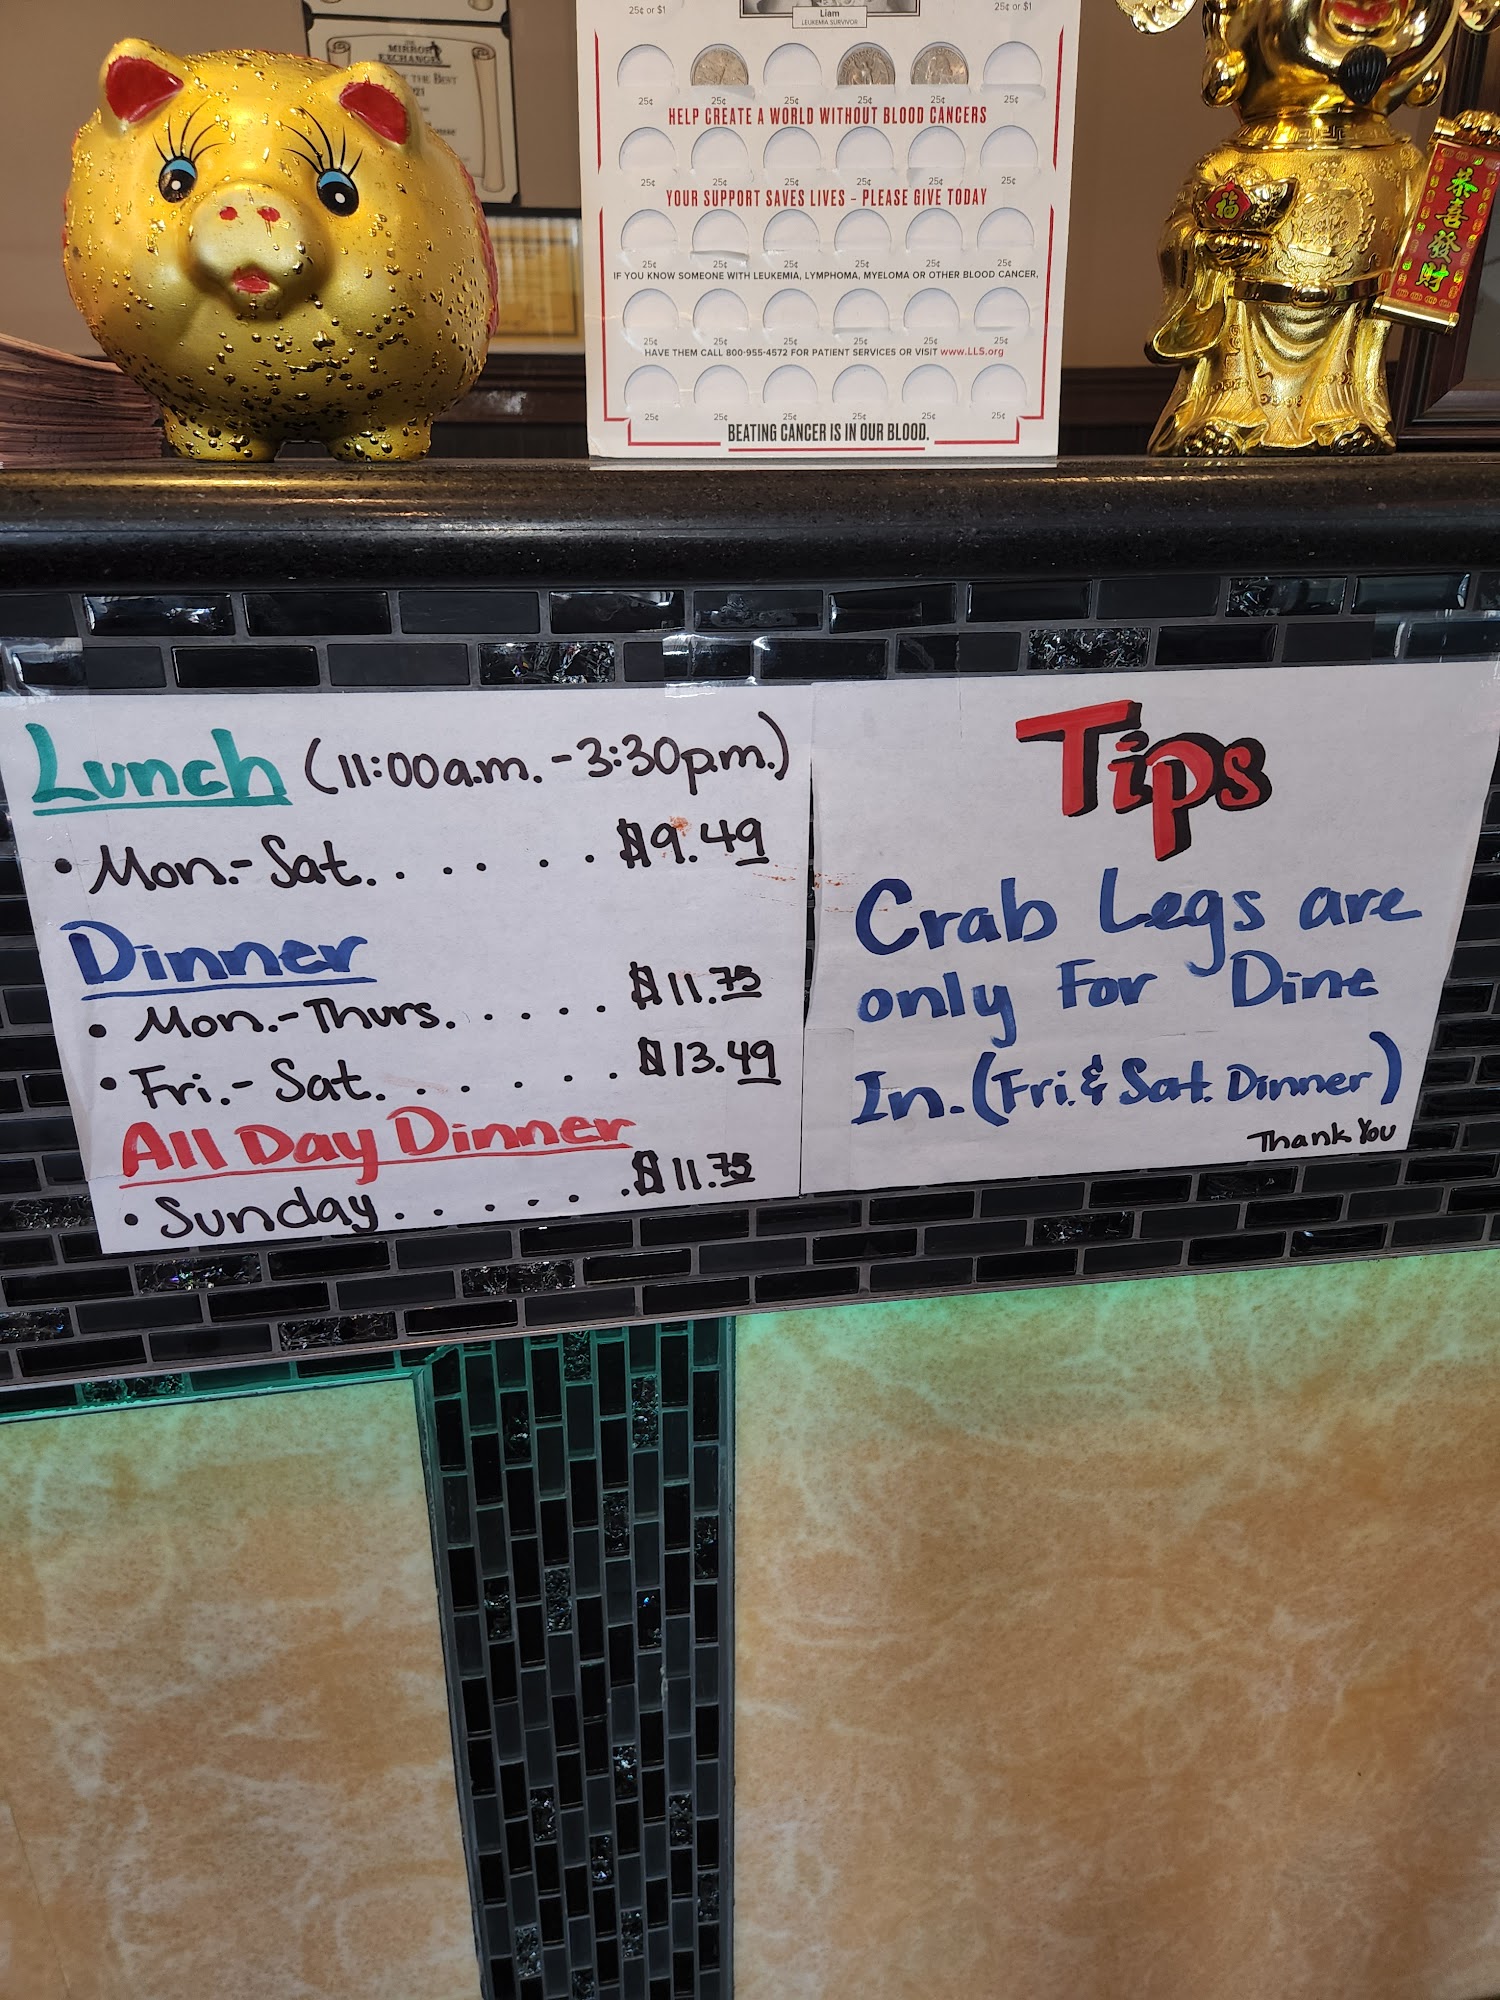 MIRROR
EXCHANGE
OF THE BEST
25¢ or $1
Liam
LEUKEMIA SURVIVOR
25¢ or $1
25¢ 25¢ 25¢ 25¢ 25¢ 25¢
HELP CREATE A WORLD WITHOUT BLOOD CANCERS
25¢ 25¢ 25¢ 25¢ 25¢ 25¢
YOUR SUPPORT SAVES LIVES – PLEASE GIVE TODAY
25¢ 25¢ 25¢ 25¢ 25¢ 25¢
IF YOU KNOW SOMEONE WITH LEUKEMIA, LYMPHOMA, MYELOMA OR OTHER BLOOD CANCER,
25¢ 25¢ 25¢ 25¢ 25¢ 25¢
HAVE THEM CALL 800-955-4572 FOR PATIENT SERVICES OR VISIT www.LLS.org
25¢ 25¢ 25¢ 25¢ 25¢ 25¢
BEATING CANCER IS IN OUR BLOOD.
福
恭喜發財
Lunch (11:00a.m.-3:30p.m.)
• Mon.-Sat. . . . . . . $9.49
Dinner
• Mon.-Thurs. . . . . . $11.75
• Fri.- Sat. . . . . . . $13.49
All Day Dinner
• Sunday . . . . . . $11.75
Tips
Crab Legs are
only For Dine
In. (Fri. & Sat. Dinner)
Thank You